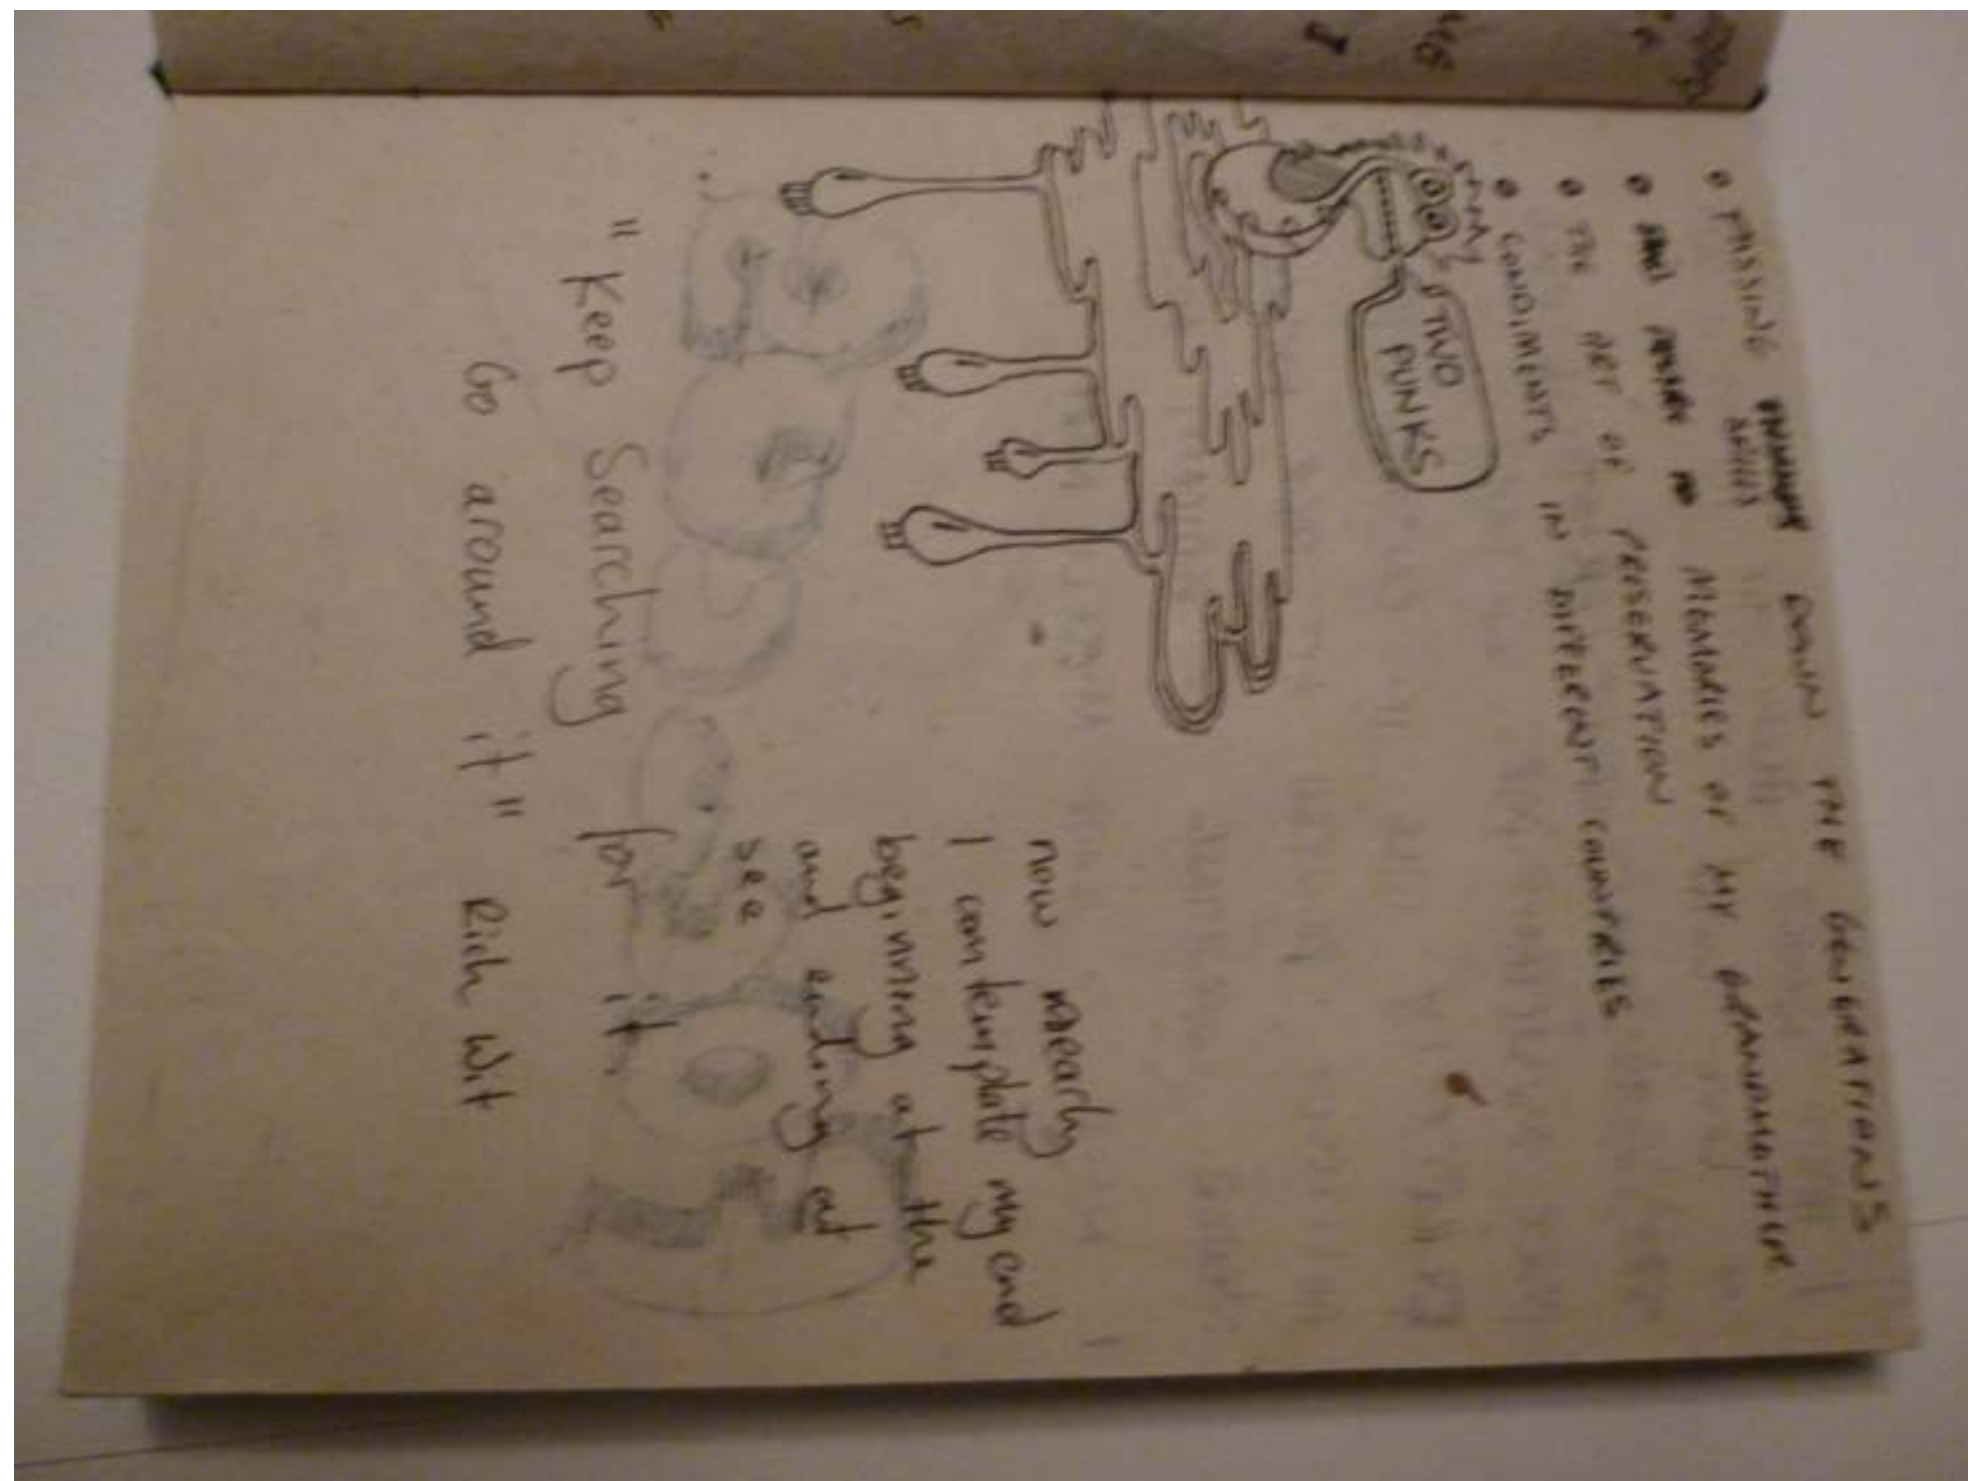 • PASSING DOWN THE GENERATIONS
• MEMORIES OF MY GRANDMOTHER
• THE ART OF PRESERVATION
• CONDIMENTS IN DIFFERENT COUNTRIES
TWO
PUNKS
now nearly
I contemplate my end
beginning at the
and ending at
see
"Keep Searching for it.
Go around it" Rich Wit